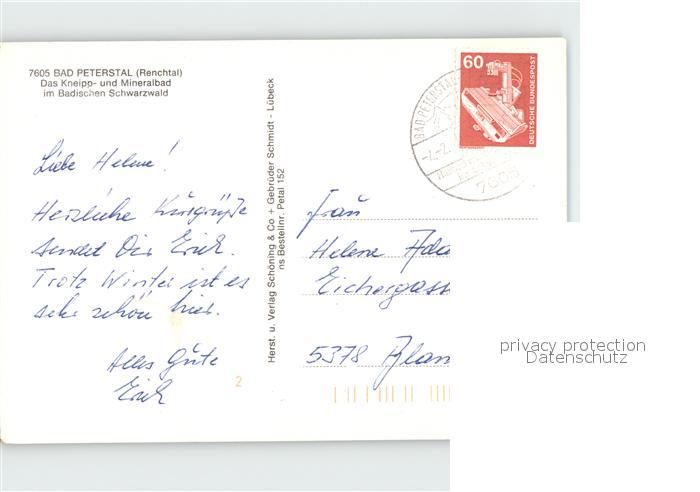 7605 BAD PETERSTAL (Renchtal)
Das Kneipp- und Mineralbad
im Badischen Schwarzwald
Liebe Helene!
Herzliche Kurgrüße
sendet Dir Erich.
Trotz Winter ist es
sehr schön hier.
Alles Gute
Erich
2
Herst. u. Verlag Schöning & Co + Gebrüder Schmidt - Lübeck
ns Bestellnr. Petal 152
60
DEUTSCHE BUNDESPOST
BAD PETERSTAL
7605
Frau
Helene
Eichergass
5378 Blan
privacy protection
Datenschutz